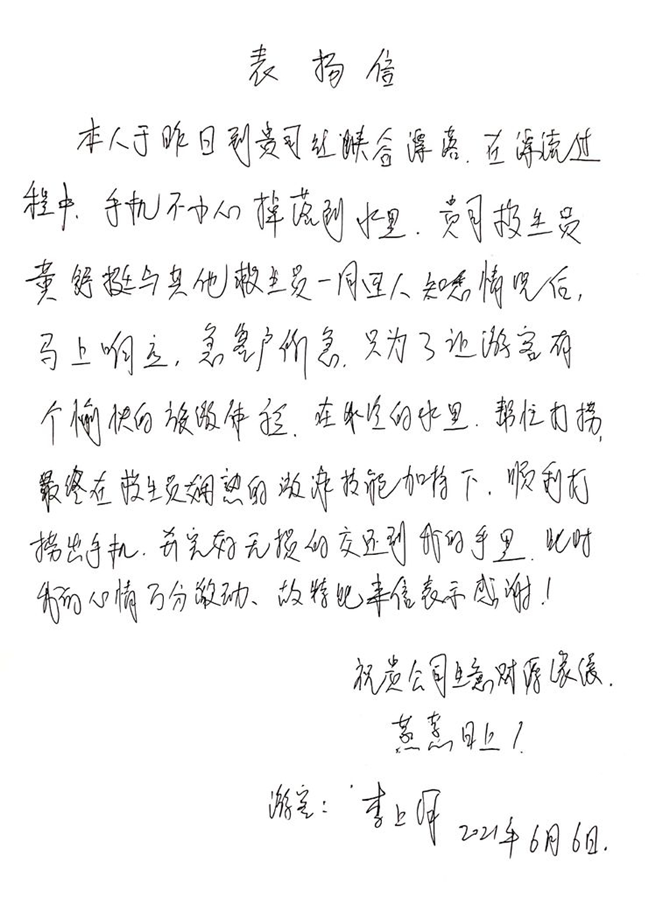 表扬信
本人于昨日到贵司红峡谷漂流.在漂流过
程中.手机不小心掉落到水里.贵司救生员
黄舒挺与其他救生员一同四人知悉情况后,
马上响应,急客户所急.只为了让游客有
个愉快的旅游体验.在冰冷的水里.帮忙打捞,
最终在救生员娴熟的游泳技能加持下.顺利打
捞出手机.并完好无损的交还到我的手里.此时
我的心情万分激动、故特此来信表示感谢!
祝贵公司生意财源滚滚.
蒸蒸日上!
游客: 李上
2021年6月6日.